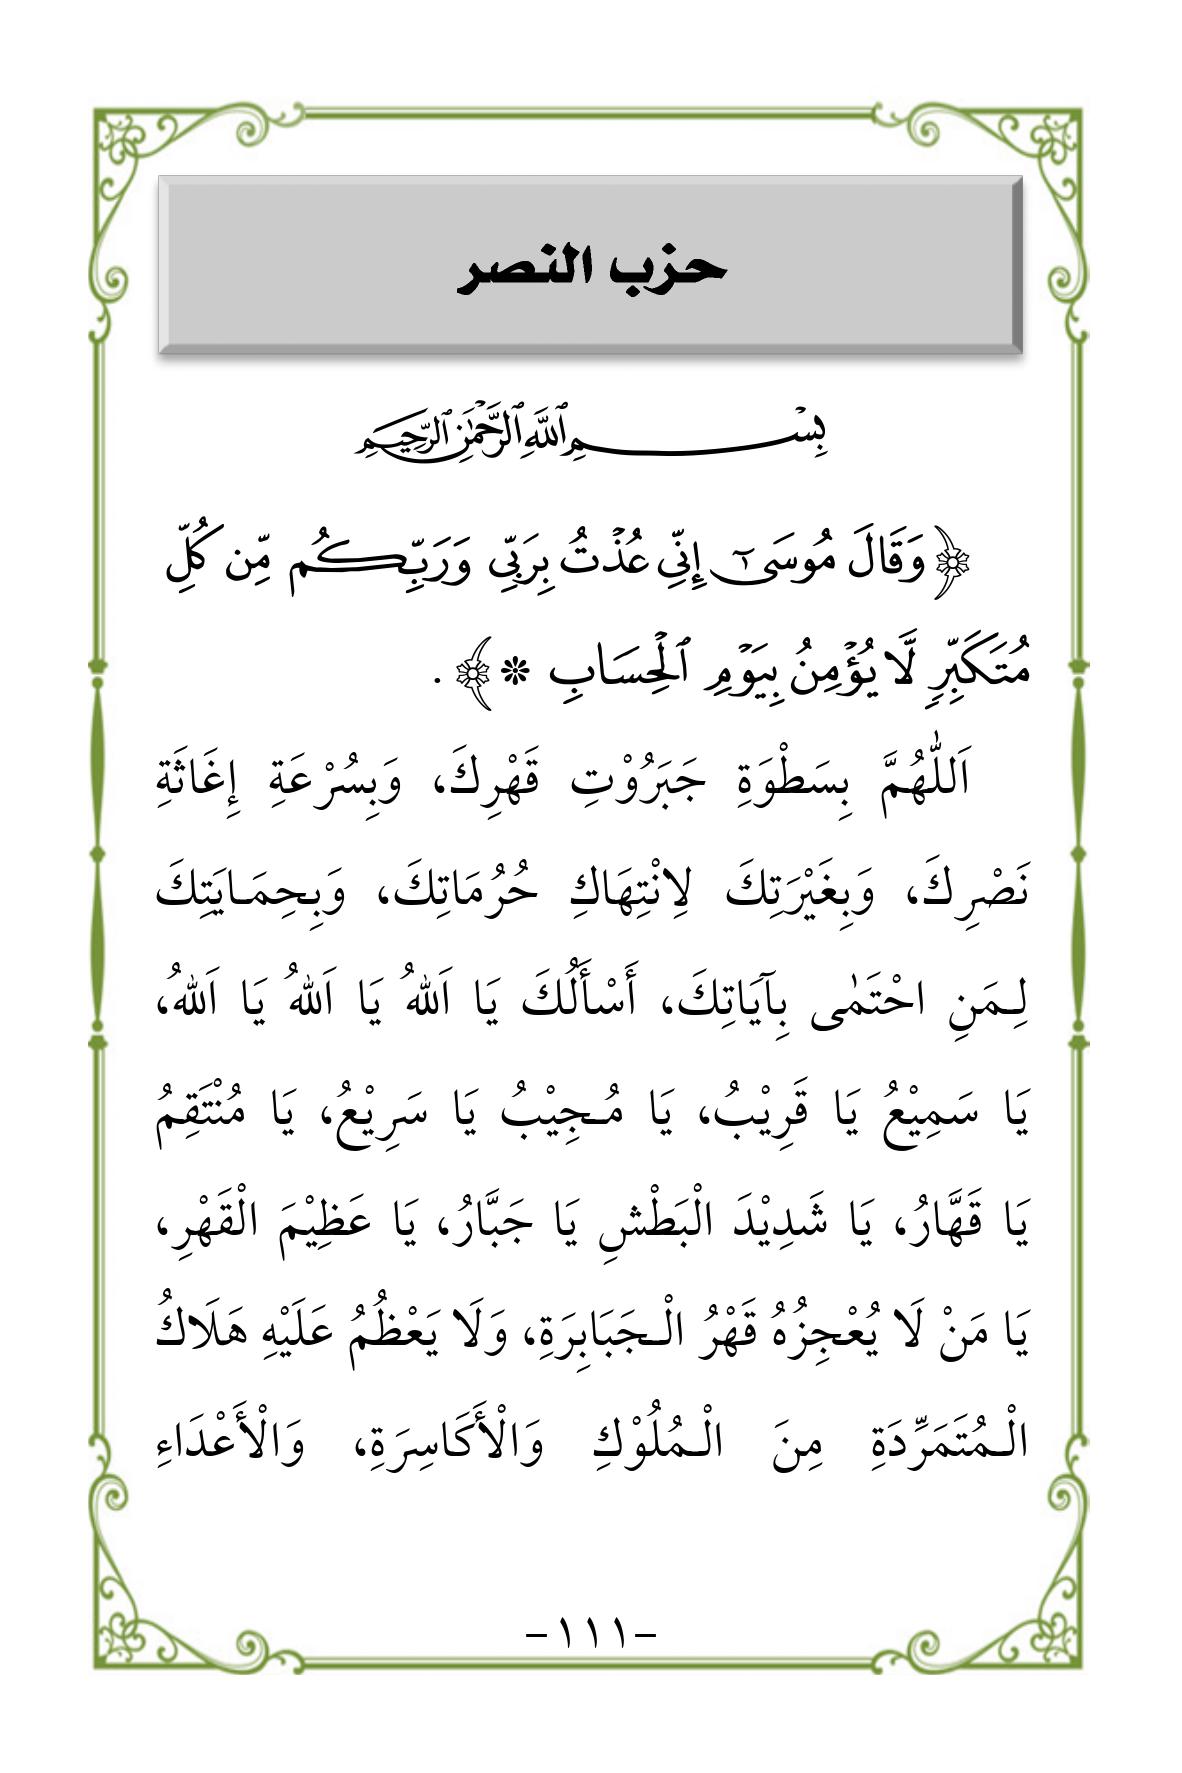 حزب النصر
بِسْمِ ٱللَّهِ ٱلرَّحْمَٰنِ ٱلرَّحِيمِ
﴿وَقَالَ مُوسَىٰٓ إِنِّي عُذْتُ بِرَبِّي وَرَبِّكُم مِّن كُلِّ
مُتَكَبِّرٍ لَّا يُؤْمِنُ بِيَوْمِ ٱلْحِسَابِ ❊﴾ .
اَللّٰهُمَّ بِسَطْوَةِ جَبَرُوْتِ قَهْرِكَ، وَبِسُرْعَةِ إِغَاثَةِ
نَصْرِكَ، وَبِغَيْرَتِكَ لِانْتِهَاكِ حُرُمَاتِكَ، وَبِحِمَايَتِكَ
لِمَنِ احْتَمٰى بِآيَاتِكَ، أَسْأَلُكَ يَا اَللهُ يَا اَللهُ يَا اَللهُ،
يَا سَمِيْعُ يَا قَرِيْبُ، يَا مُجِيْبُ يَا سَرِيْعُ، يَا مُنْتَقِمُ
يَا قَهَّارُ، يَا شَدِيْدَ الْبَطْشِ يَا جَبَّارُ، يَا عَظِيْمَ الْقَهْرِ،
يَا مَنْ لَا يُعْجِزُهُ قَهْرُ الْجَبَابِرَةِ، وَلَا يَعْظُمُ عَلَيْهِ هَلَاكُ
الْمُتَمَرِّدَةِ مِنَ الْمُلُوْكِ وَالْأَكَاسِرَةِ، وَالْأَعْدَاءِ
-١١١-